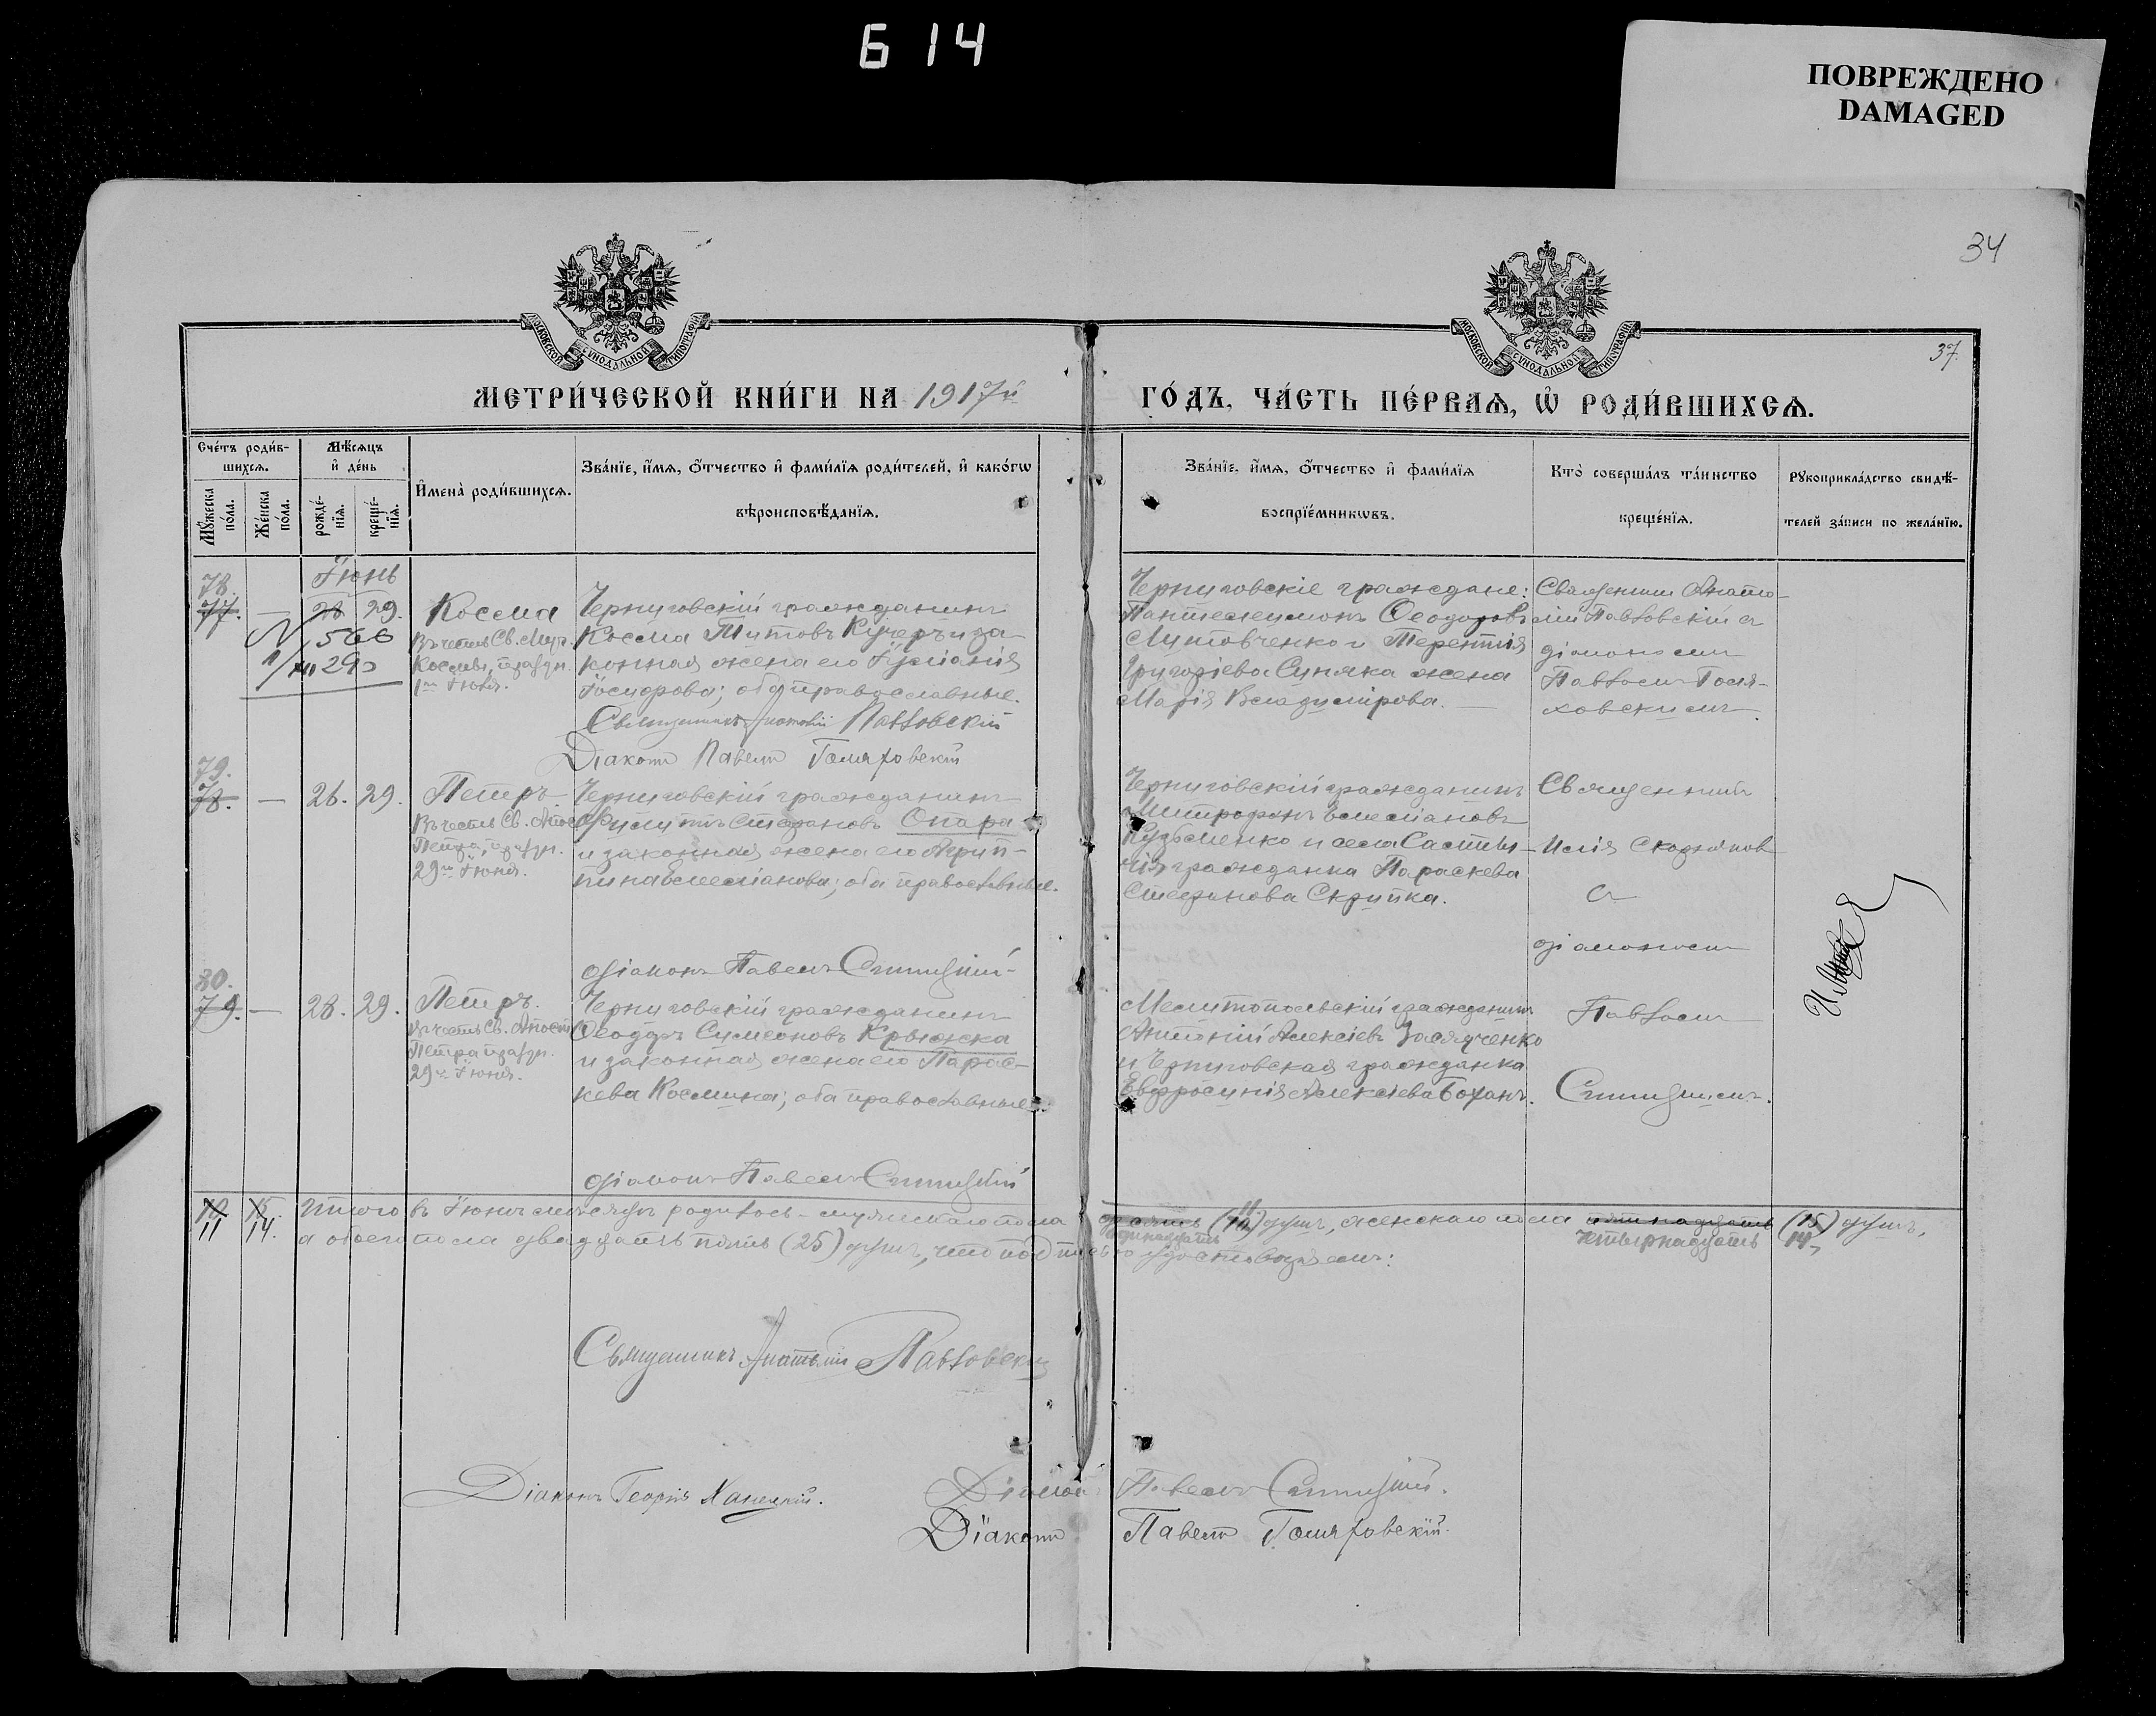 614
ПОВРЕЖДЕНО
DAMAGED
34
37.
МОСКОВСКОЙ СѴНОДАЛЬНОЙ ТИПОГРАФІИ
МОСКОВСКОЙ СѴНОДАЛЬНОЙ ТИПОГРАФІИ
МЕТРИ́ЧЕСКОЙ КНИ́ГИ НА 1917й
ГО́ДЪ, ЧА́СТЬ ПЕ́РВАЯ, Ѡ҆ РОДИ́ВШИХСЯ.
Сче́тъ роди́в-
шихся.
Мꙋ́жеска по́ла.
Же́нска по́ла.
Мѣ́сяцъ и҆ де́нь
рожде́-нїя.
креще́-нїя.
И҆мена̀ роди́вшихся.
Зва́нїе, и҆́мя, ѻ҆́тчество и҆ фами́лїя роди́телей, и҆ како́гѡ
вѣроисповѣ́данїя.
Зва́нїе, и҆́мя, ѻ҆́тчество и҆ фами́лїя
воспрїе́мникѡвъ.
Кто̀ соверша́лъ та́инство
креще́нїя.
Рꙋкоприкла́дство свидѣ́-
телей за́писи по жела́нїю.
Іюнь
78.
77. — 28 29. Косма
N 566
Въ честь Св. Муч.
Космы, праздн.
1го Іюля.
Черниговскій гражданинъ
Косма Титовъ Кучеръ и за-
конная жена его Іуліанія
Іосифова; оба православные.
Священникъ Анатолій Павловскій
Діаконъ Павелъ Гомяховскій
Черниговскіе граждане:
Пантелеимонъ Ѳеодоровъ
Литовченко и Терентія
Григоріева Синяка жена
Марія Владимірова. —
Священникъ Анато-
лій Павловскій съ
діакономъ
Павломъ Гомя-
ховскимъ.
79.
78. — 26. 29. Петръ
Въ честь Св. Апос.
Петра, праздн.
29го Іюня.
Черниговскій гражданинъ
Филиппъ Стефановъ Опара
и законная жена его Агрип-
пина Емеліанова; оба православные.
діаконъ Павелъ Синицкій
Черниговскій гражданинъ
Митрофанъ Емеліановъ
Кузьменко и села
гражданка Параскева
Стефанова Скрипка.
Священникъ
Илія
съ
діакономъ
80.
79. — 28. 29. Петръ.
Въ честь Св. Апост.
Петра праздн.
29го Іюня.
Черниговскій гражданинъ
Ѳеодоръ Симеоновъ Крыжка
и законная жена его Парас-
кева Космина; оба православные.
діаконъ Павелъ Синицкій
Мелитопольскій гражданинъ
Антоній Алексіевъ
и Черниговская гражданка
Евфросинія Алексіева Боханъ.
Павломъ
Синицкимъ.
10 15. Итого въ Іюнѣ мѣсяцѣ родилось — мужескаго пола десять (10) душъ, женскаго пола пятнадцать (15) душъ,
11 14. одинадцать 11 четырнадцать 14,
а обоего пола двадцать пять (25) душъ, что подписью удостовѣряемъ:
Священникъ Анатолій Павловскій
Діаконъ Георгій Ханецкій.
Діаконъ Павелъ Синицкій.
Діаконъ Павелъ Гомяховскій.